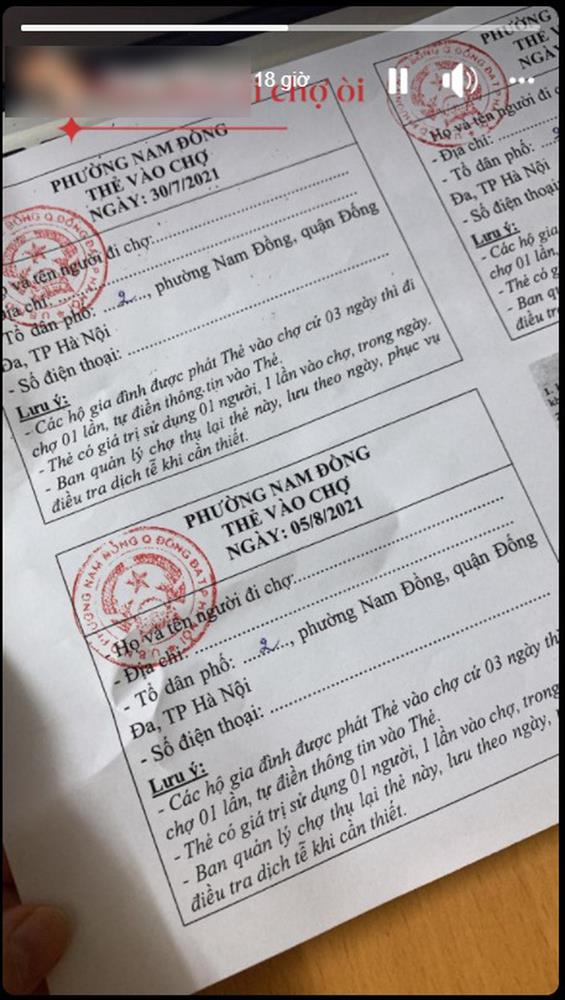 18 giờ
i chợ òi
PHƯỜNG NAM ĐỒNG
THẺ VÀO CHỢ
NGÀY: 30/7/2021
và tên người đi chợ:
Địa chỉ:
Tổ dân phố: ...2..., phường Nam Đồng, quận Đống
Đa, TP Hà Nội
- Số điện thoại:
Lưu ý:
- Các hộ gia đình được phát Thẻ vào chợ cứ 03 ngày thì đi
chợ 01 lần, tự điền thông tin vào Thẻ.
- Thẻ có giá trị sử dụng 01 người, 1 lần vào chợ, trong ngày.
- Ban quản lý chợ thụ lại thẻ này, lưu theo ngày, phục vụ
điều tra dịch tễ khi cần thiết.
PHƯỜNG NAM ĐỒNG
THẺ VÀO CHỢ
NGÀY: 05/8/2021
Họ và tên người đi chợ:
- Địa chỉ:
- Tổ dân phố: ...2..., phường Nam Đồng, quận Đống
Đa, TP Hà Nội
- Số điện thoại:
Lưu ý:
- Các hộ gia đình được phát Thẻ vào chợ cứ 03 ngày thì
chợ 01 lần, tự điền thông tin vào Thẻ.
- Thẻ có giá trị sử dụng 01 người, 1 lần vào chợ, trong
- Ban quản lý chợ thụ lại thẻ này, lưu theo ngày,
điều tra dịch tễ khi cần thiết.
PHƯỜNG
THẺ
NGÀ
Họ và tên người đi
- Địa chỉ:
- Tổ dân phố:
Đa, TP Hà Nội
- Số điện thoại
Lưu ý:
- Các hộ gia
chợ 01 lần,
- Thẻ có g
- Ban qu
điều tr